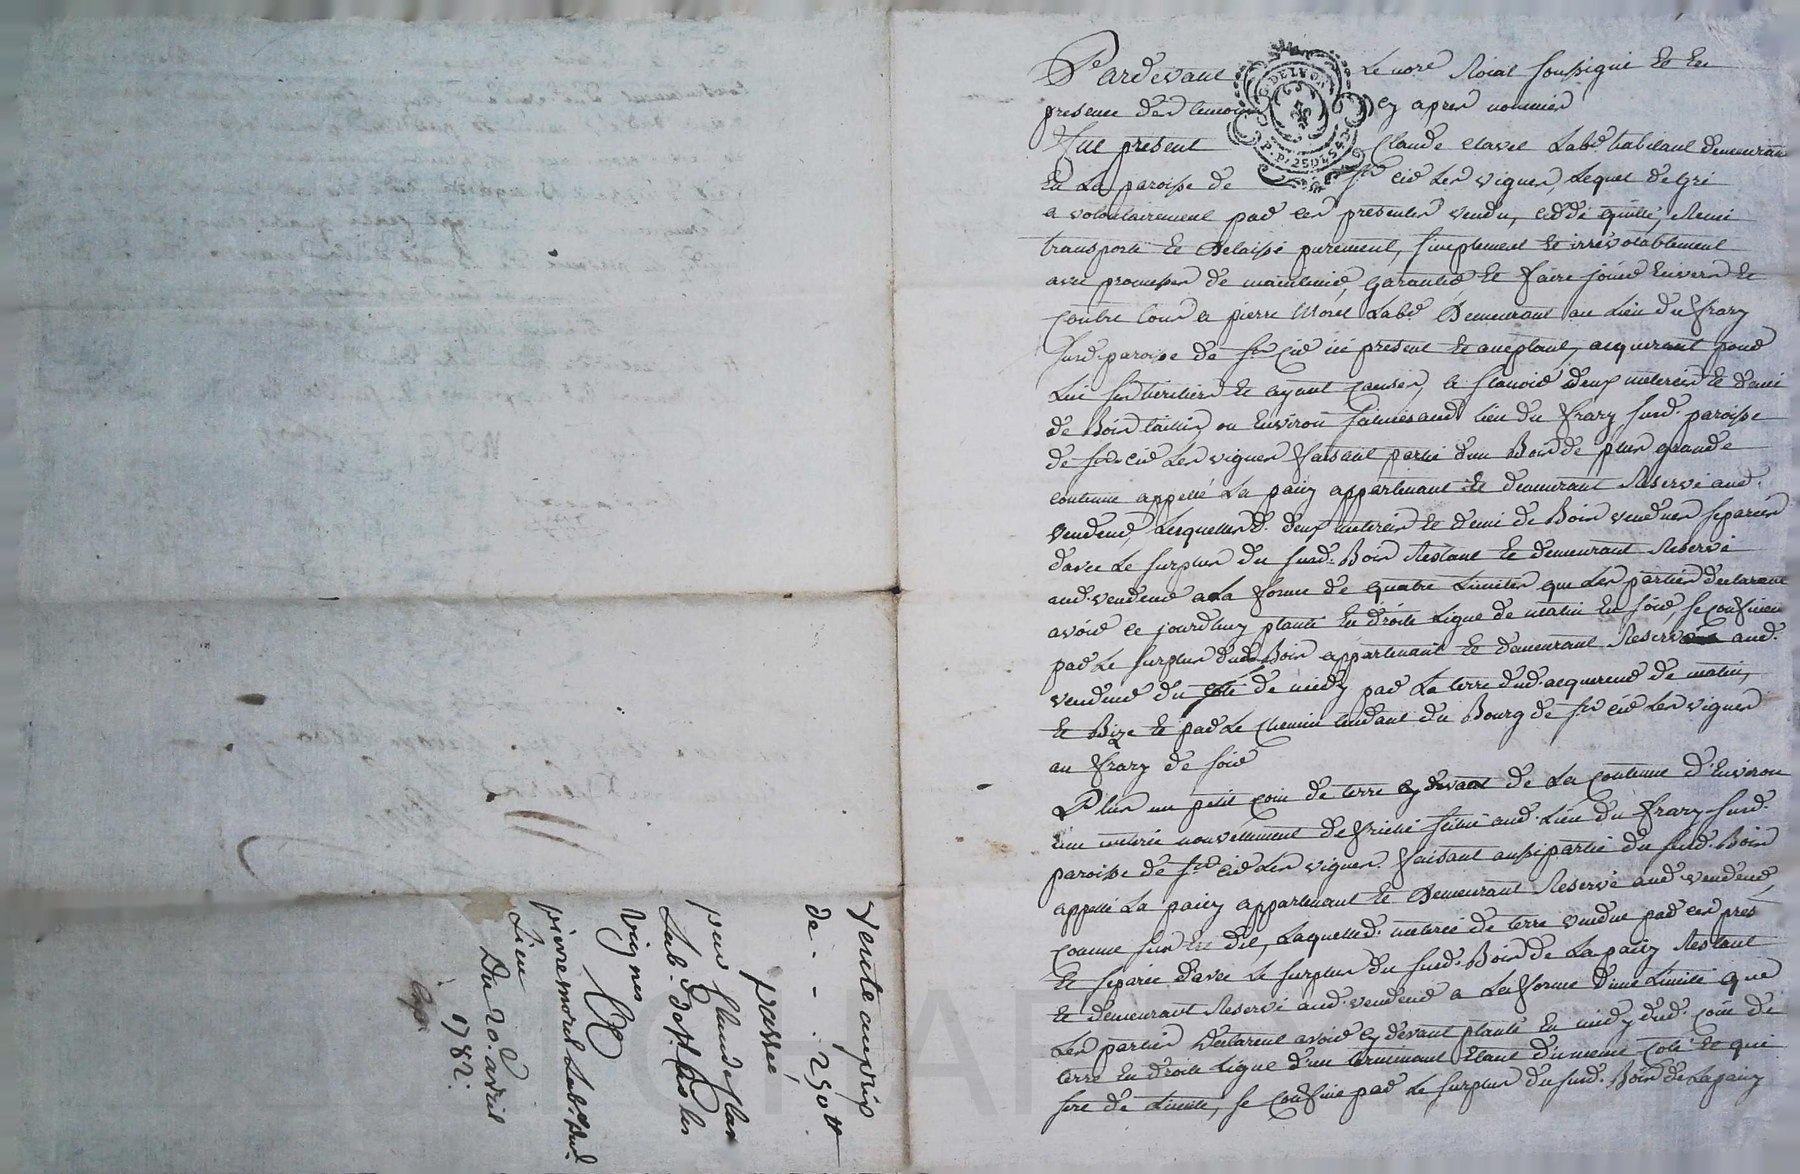 Pardevant Le nore Roial soussigné et en
presence des temoins cy apres nommés
Fut present Claude clavel Labr habitant demeurant
en La paroisse de st cir Les vignes, Lequel de gré
a volontairement par ces presentes vendu, ceddé quitté, Remi
transporté et Delaissé purement, simplement et irrévocablement
avec promesses de maintenir, garantir et faire jouir Envers et
Contre tous a pierre Morel Labr Demeurant au Lieu du frary
susd. paroisse de st Cir ici present et acceptant, acquerant pour
Lui ses heritiers et ayant Causes, a sçavoir deux meterées et demi
de Bois taillis ou Environ scituées aud lieu du frary susd. paroisse
de st cir Les vignes faisant partie d'un Bois de plus grande
contenue appellé La paisy appartenant et demeurant Reservé aud.
vendeur, Lesquelles d. deux meterées et demi de Bois vendues separées
d'avec Le surplus du susd. Bois Restant et demeurant Reservé
aud. vendeur a La forme de quatre Limites que Les parties declarent
avoir ce jourd'huy planté En droite Ligne de matin En soir, se confinent
par Le surplus dud. Bois appartenant et demeurant Reservé aud.
vendeur du coté de midy par La terre dud. acquereur de matin,
et Bize et par Le Chemin tendant du Bourg de st cir Les vignes
au frary de soir
Plus un petit coin de terre de La Contenue d'Environ
une meterée nouvellement defriché scitué aud. Lieu du frary susd.
paroisse de st cir Les vignes faisant aussi partie du susd. Bois
appellé La paisy appartenant et Demeurant Reservé aud. vendeur,
Comme sus Est dit, Laquelle d. meterée de terre vendue par ces pres
et separée d'avec Le surplus du susd. Bois de La paisy Restant
et demeurant Reservé aud. vendeur a La forme d'une Limite que
Les parties Declarent avoir cy devant planté En midy dud. coin de
terre En droite Ligne d'un terminant Etant du meme coté et qui
sert de Limite, se Confine par Le surplus du susd. Bois de La paisy
Vente au prix
de - - . 250 tt
passé
par Claude Clavel
Lab. a st Cir les
vignes
A
pierre morel Lab. dud.
Lieu
Du 20. avril
1782.